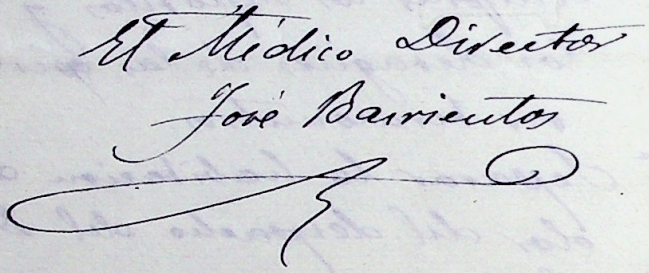 El Médico Director
José Barrientos